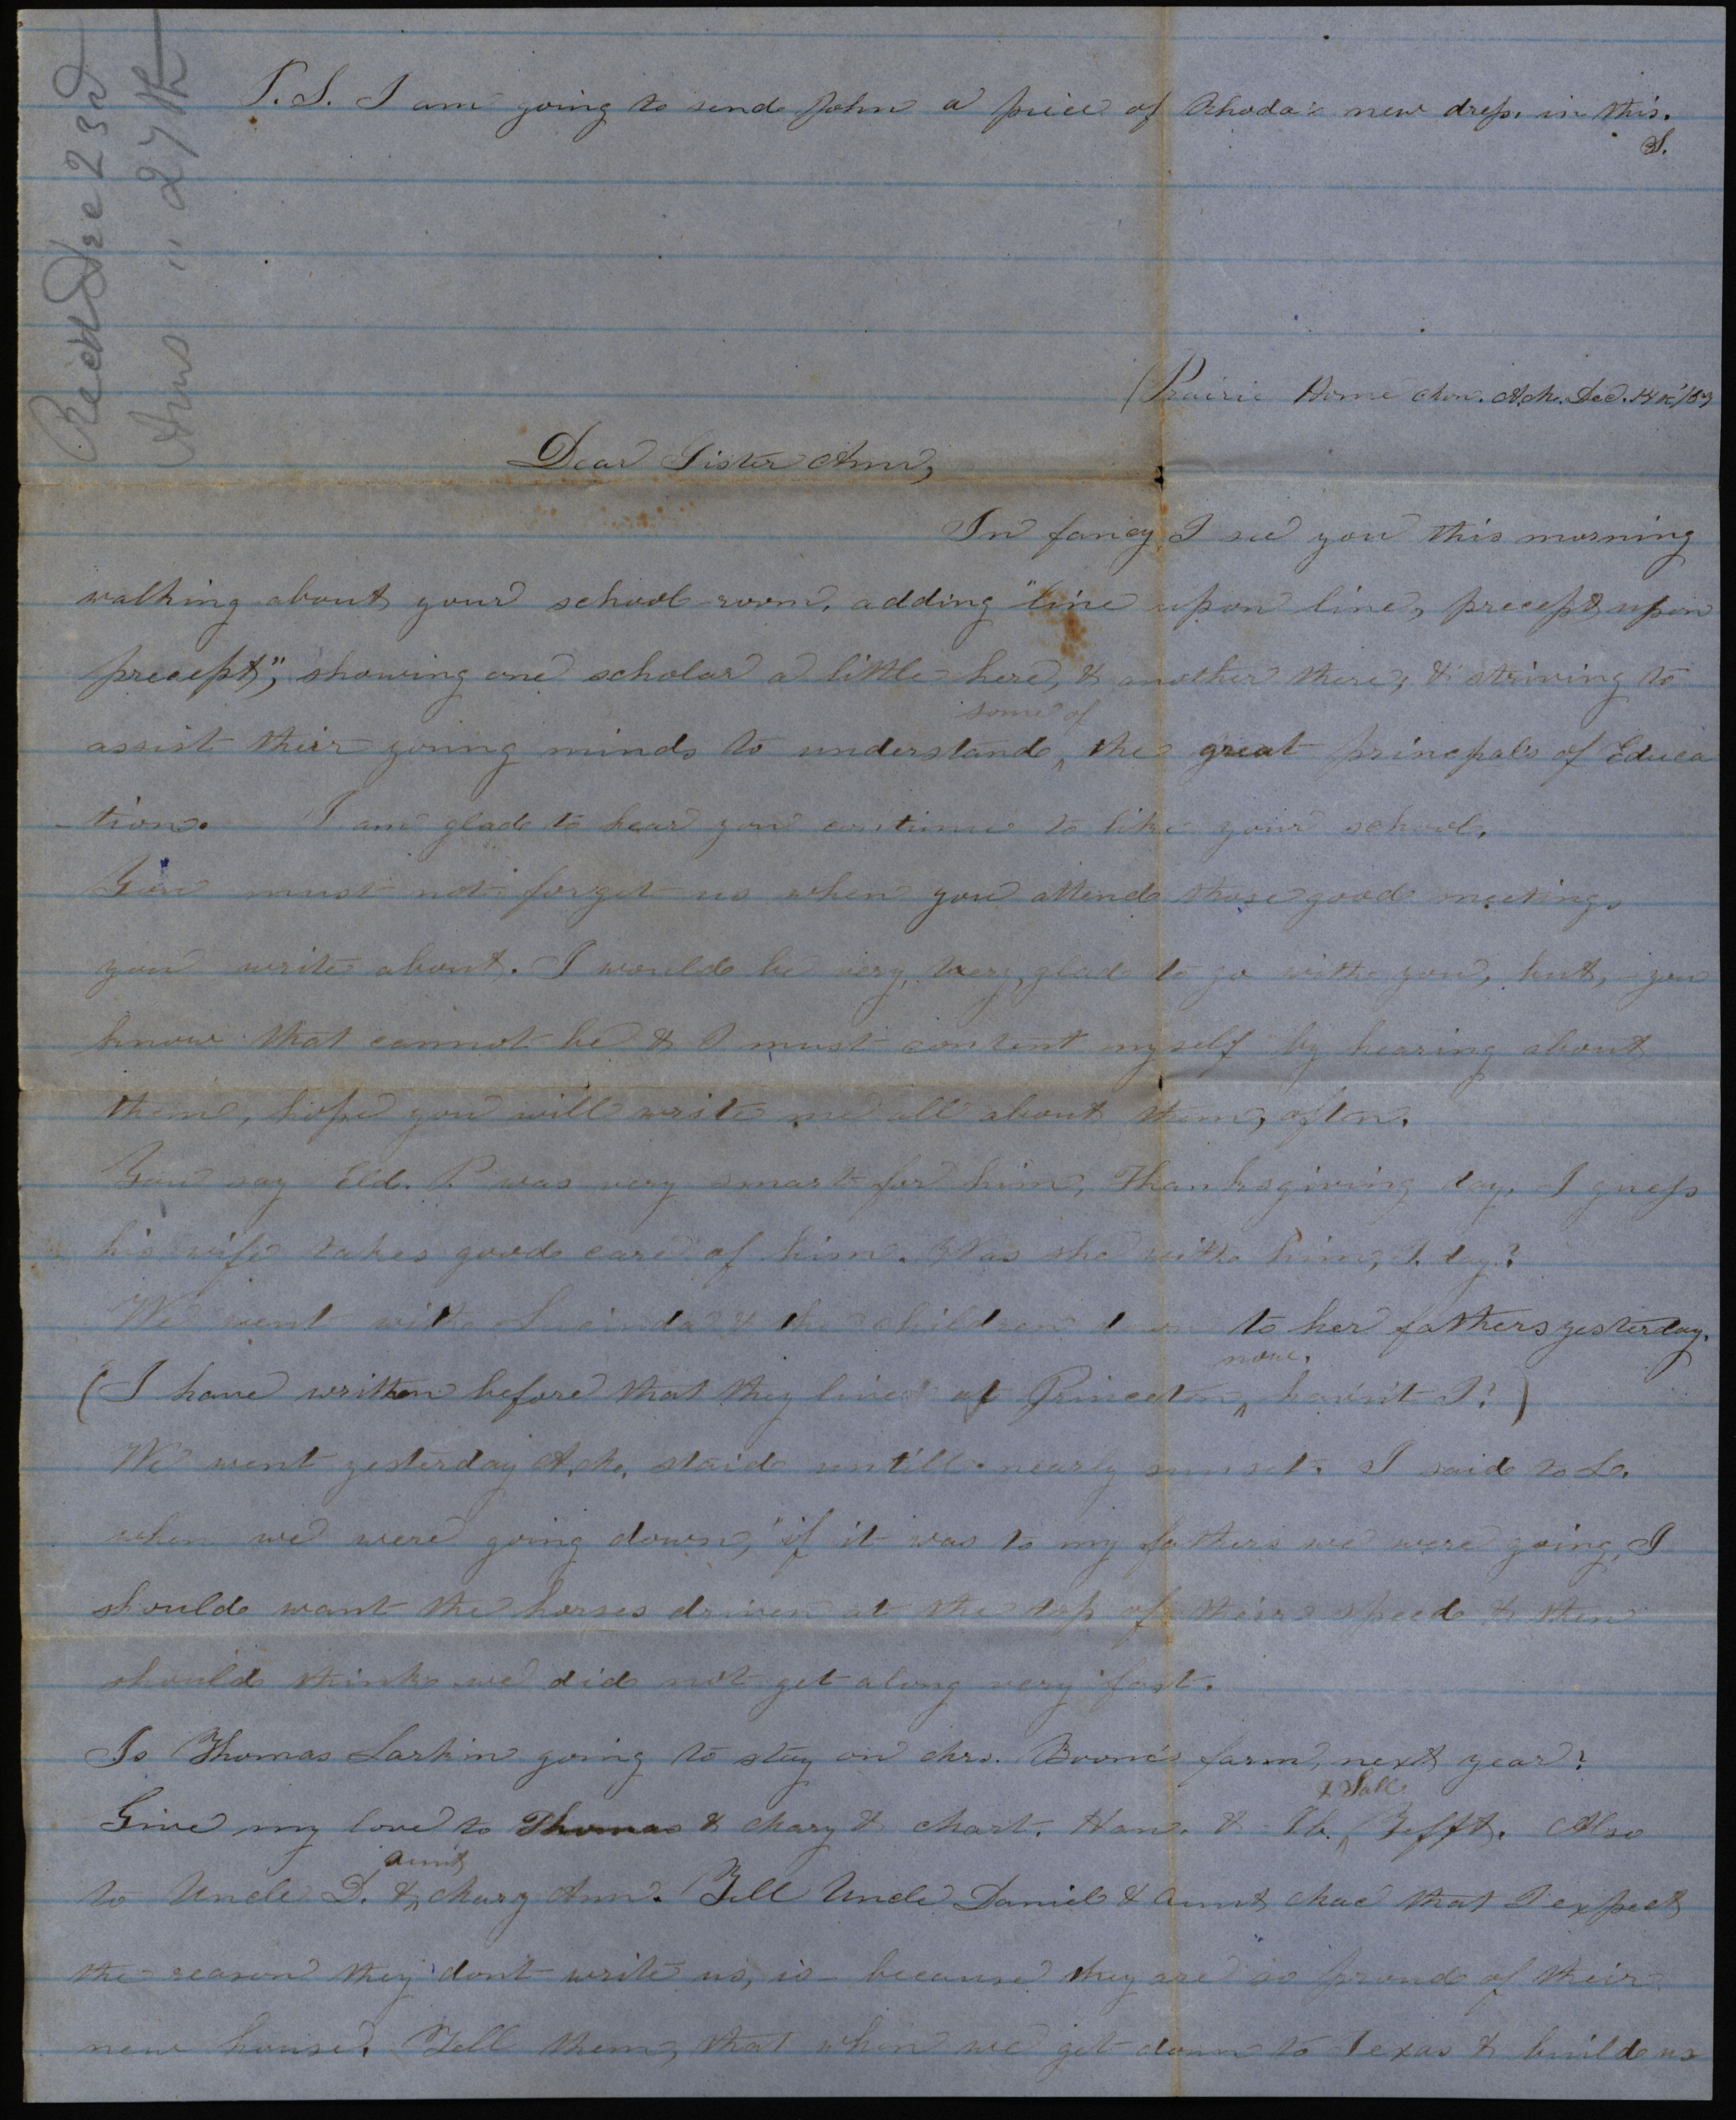 P.S. I am going to send John a piece of Rhoda's new dress in this.
S.
Recd Dec 23rd
Ans " 27th
Prairie Home Mon. A.M. Dec. 14th
Dear Sister Ann,
In fancy I see you this morning
walking about your school-room, adding "line upon line, precept upon
precept", showing one scholar a little here, & another there, & striving to
some of
assist their young minds to understand ^ the great principals of Educa
-tion. I am glad to hear you continue to like your school.
You must not forget us when you attend those good meetings
you write about. I would be very, very, glad to go with you, but, you
know that cannot be & I must content myself by hearing about
them, hope you will write me all about them, often.
You say Eld. P. was very smart for him, Thanksgiving day. I guess
his wife takes good care of him. Was she with him, T. day?
We went with Lucinda & the children down to her fathers yesterday.
now.
(I have written before that they lived at Princeton ^ hav'nt I?)
We went yesterday A.M. staid untill nearly sunset. I said to L.
when we were going down, if it was to my fathers we were going, I
should want the horses driven at the top of their speed & then
should think we did not get along very fast.
Is Thomas Larkin going to stay on Mrs. Boone's farm, next year?
& Sall
Give my love to Thomas & Mary & Mart. Han. & ^ Tefft. Also
aunt
to Uncle D. & ^ Mary Ann. Tell Uncle Daniel & Aunt Mae that I expect
the reason they dont write us, is because they are so proud of their
new house. Tell them, that when we get down to Texas & build us